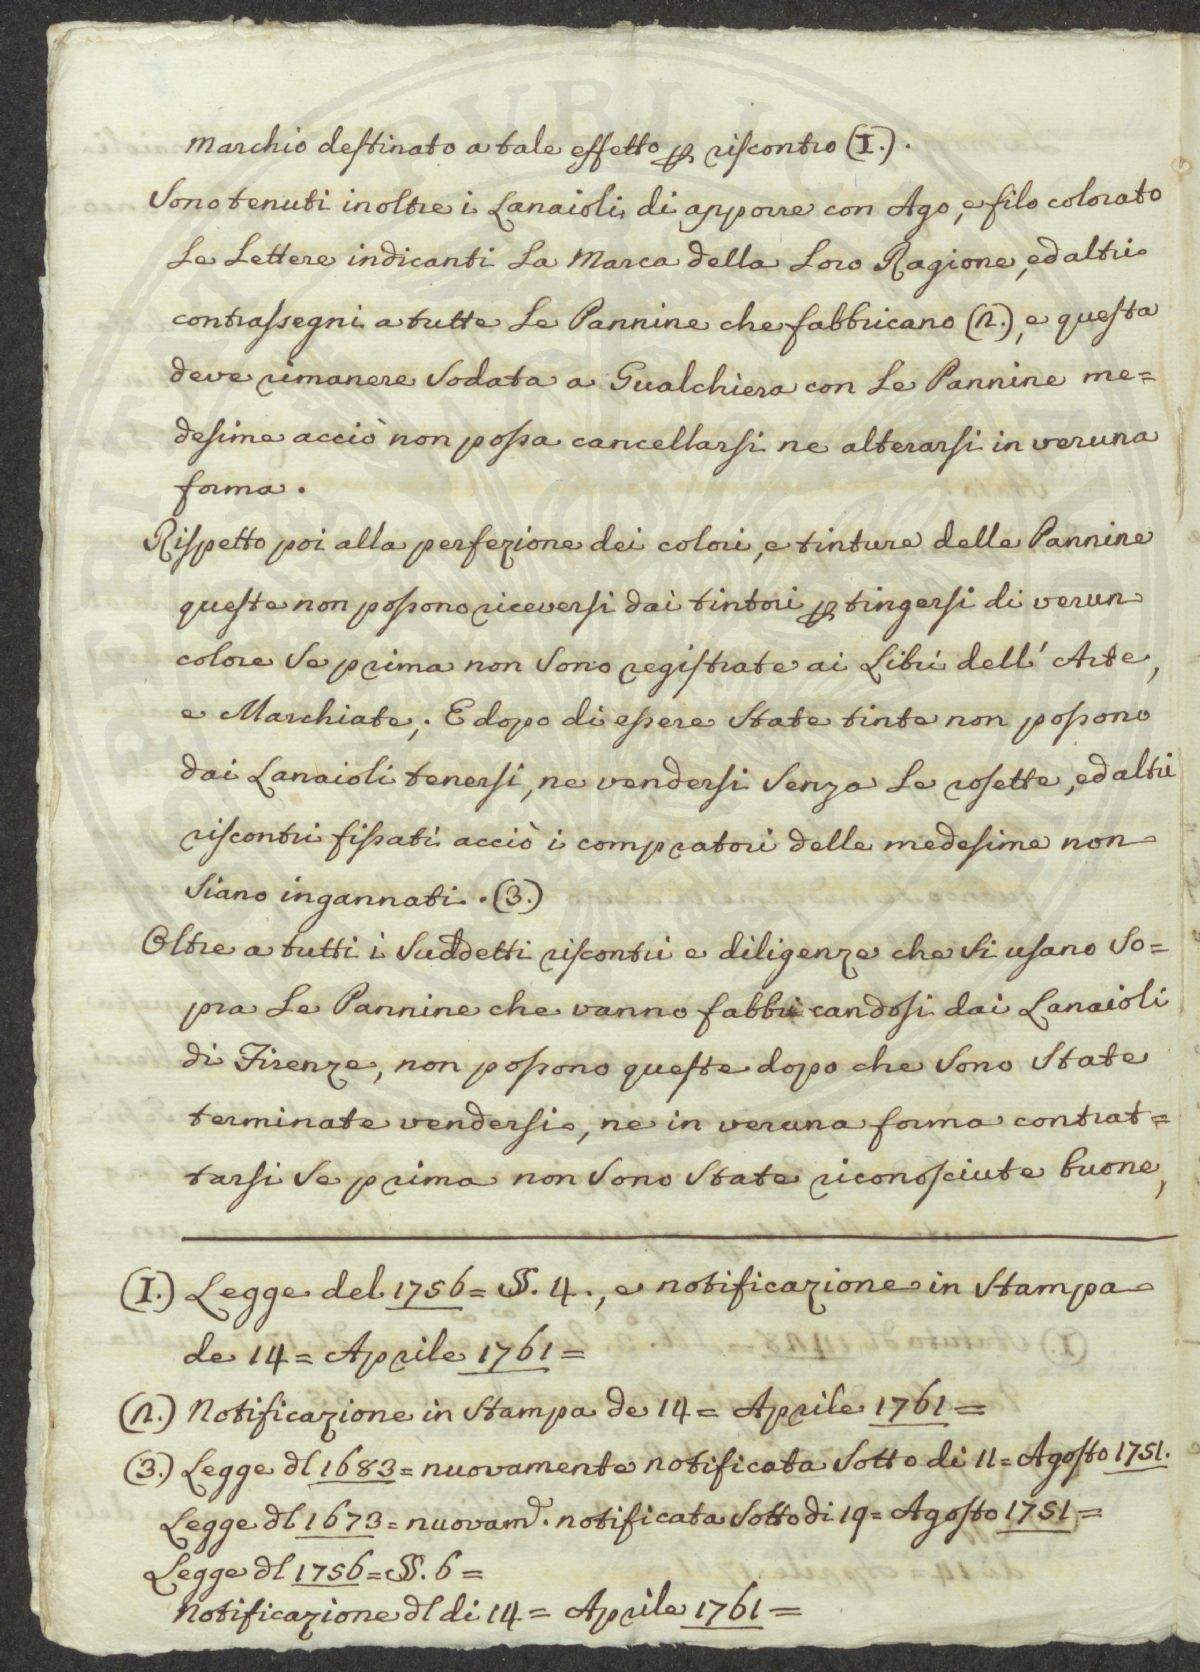 marchio destinato a tale effetto p riscontro (1.).
Sono tenuti inoltre i Lanaioli di apporre con Ago, e filo colorato
Le Lettere indicanti La Marca della Loro Ragione, ed altri
contrassegni a tutte Le Pannine che fabbricano (2.), e questa
deve rimanere Sodata a Gualchiera con Le Pannine me=
desime acciò non possa cancellarsi ne alterarsi in veruna
forma.
Rispetto poi alla perfezione dei colori, e tinture delle Pannine
queste non possono riceversi dai tintori p tingersi di verun
colore Se prima non Sono registrate ai Libri dell' Arte,
e Marchiate; E dopo di essere State tinte non possono
dai Lanaioli tenersi, ne vendersi Senza Le rosette, ed altri
riscontri fissati acciò i compratori delle medesime non
Siano ingannati. (3.)
Oltre a tutti i Suddetti riscontri e diligenze che Si usano So=
pra Le Pannine che vanno fabbricandosi dai Lanaioli
di Firenze, non possono queste dopo che Sono State
terminate vendersi, ne in veruna forma contrat=
tarsi Se prima non Sono State riconosciute buone,
(1.) Legge del 1756= §. 4., e notificazione in Stampa
de 14= Aprile 1761=
(2.) Notificazione in Stampa de 14= Aprile 1761=
(3.) Legge dl 1683= nuovamente notificata Sotto di 11= Agosto 1751.
Legge dl 1673= nuovam.e notificata Sotto di 19= Agosto 1751=
Legge dl 1756= §. 6=
Notificazione dl di 14= Aprile 1761=